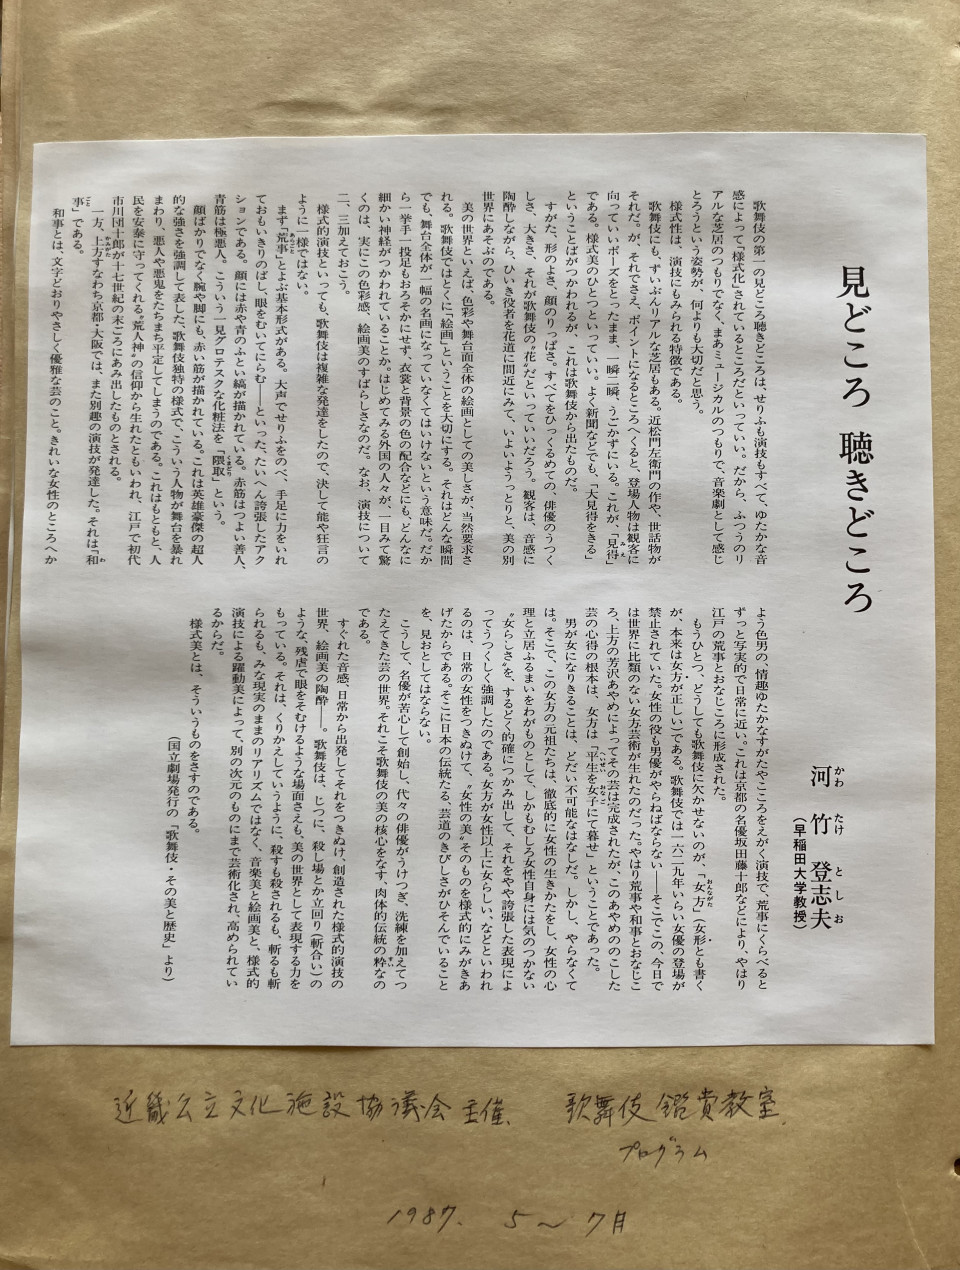 見どころ 聴きどころ
河竹登志夫
(早稲田大学教授)
歌舞伎の第一の見どころ聴きどころは、せりふも演技もすべて、ゆたかな音
感によって“様式化”されているところだといっていい。だから、ふつうのリ
アルな芝居のつもりでなく、まあミュージカルのつもりで、音楽劇として感じ
とろうという姿勢が、何よりも大切だと思う。
様式性は、演技にもみられる特徴である。
歌舞伎にも、ずいぶんリアルな芝居もある。近松門左衛門の作や、世話物が
それだ。が、それでさえ、ポイントになるところへくると、登場人物は観客に
向っていいポーズをとったまま、一瞬二瞬、うごかずにいる。これが、「見得」
である。様式美のひとつといっていい。よく新聞などでも、「大見得をきる」
ということばがつかわれるが、これは歌舞伎から出たものだ。
すがた、形のよさ、顔のりっぱさ。すべてをひっくるめての、俳優のうつく
しさ、大きさ、それが歌舞伎の“花”だといっていいだろう。観客は、音感に
陶酔しながら、ひいき役者を花道に間近にみて、いよいようっとりと、美の別
世界にあそぶのである。
美の世界といえば、色彩や舞台面全体の絵画としての美しさが、当然要求さ
れる。歌舞伎ではとくに「絵画」ということを大切にする。それはどんな瞬間
でも、舞台全体が一幅の名画になっていなくてはいけないという意味だ。だか
ら一挙手一投足もおろそかにせず、衣裳と背景の色の配合などにも、どんなに
細かい神経がつかわれていることか。はじめてみる外国の人々が、一目みて驚
くのは、実にこの色彩感、絵画美のすばらしさなのだ。なお、演技について
二、三加えておこう。
様式的演技といっても、歌舞伎は複雑な発達をしたので、決して能や狂言の
ように一様ではない。
まず「荒事」とよぶ基本形式がある。大声でせりふをのべ、手足に力をいれ
ておもいきりのばし、眼をむいてにらむ――といった、たいへん誇張したアク
ションである。顔には赤や青のふとい縞が描かれている。赤筋はつよい善人、
青筋は極悪人。こういう一見グロテスクな化粧法を「隈取」という。
顔ばかりでなく腕や脚にも、赤い筋が描かれている。これは英雄豪傑の超人
的な強さを強調して表した、歌舞伎独特の様式で、こういう人物が舞台を暴れ
まわり、悪人や悪鬼をたちまち平定してしまうのである。これはもともと、人
民を安泰に守ってくれる“荒人神”の信仰から生れたともいわれ、江戸で初代
市川団十郎が十七世紀の末ごろにあみ出したものとされる。
一方、上方すなわち京都・大阪では、また別趣の演技が発達した。それは「和
事」である。
和事とは、文字どおりやさしく優雅な芸のこと。きれいな女性のところへか
よう色男の、情趣ゆたかなすがたやこころをえがく演技で、荒事にくらべると
ずっと写実的で日常に近い。これは京都の名優坂田藤十郎などにより、やはり
江戸の荒事とおなじころに形成された。
もうひとつ、どうしても歌舞伎に欠かせないのが、「女方」(女形とも書く
が、本来は女方が正しい)である。歌舞伎では一六二九年いらい女優の登場が
禁止されていた。女性の役も男優がやらねばならない――そこでこの、今日で
は世界に比類のない女方芸術が生れたのだった。やはり荒事や和事とおなじこ
ろ、上方の芳沢あやめによってその芸は完成されたが、このあやめののこした
芸の心得の根本は、女方は「平生を女子にて暮せ」ということであった。
男が女になりきることは、どだい不可能なはなしだ。しかし、やらなくて
は。そこで、この女方の元祖たちは、徹底的に女性の生きかたをし、女性の心
理と立居ふるまいをわがものとして、しかもむしろ女性自身には気のつかない
“女らしさ”を、するどく的確につかみ出して、それをやや誇張した表現によ
ってうつくしく強調したのである。女方が女性以上に女らしい、などといわれ
るのは、日常の女性をつきぬけて、“女性の美”そのものを様式的にみがきあ
げたからである。そこに日本の伝統たる、芸道のきびしさがひそんでいること
を、見おとしてはならない。
こうして、名優が苦心して創始し、代々の俳優がうけつぎ、洗練を加えてつ
たえてきた芸の世界。それこそ歌舞伎の美の核心をなす、肉体的伝統の粋なの
である。
すぐれた音感、日常から出発してそれをつきぬけ、創造された様式的演技の
世界、絵画美の陶酔――。歌舞伎は、じつに、殺し場とか立回り(斬合い)の
ような、残虐で眼をそむけるような場面さえも、美の世界として表現する力を
もっている。それは、くりかえしていうように、殺すも殺されるも、斬るも斬
られるも、みな現実のままのリアリズムではなく、音楽美と絵画美と、様式的
演技による躍動美によって、別の次元のものにまで芸術化され、高められてい
るからだ。
様式美とは、そういうものをさすのである。
(国立劇場発行の「歌舞伎・その美と歴史」より)
近畿公立文化施設協議会主催、 歌舞伎鑑賞教室
プログラム
1987. 5〜7月